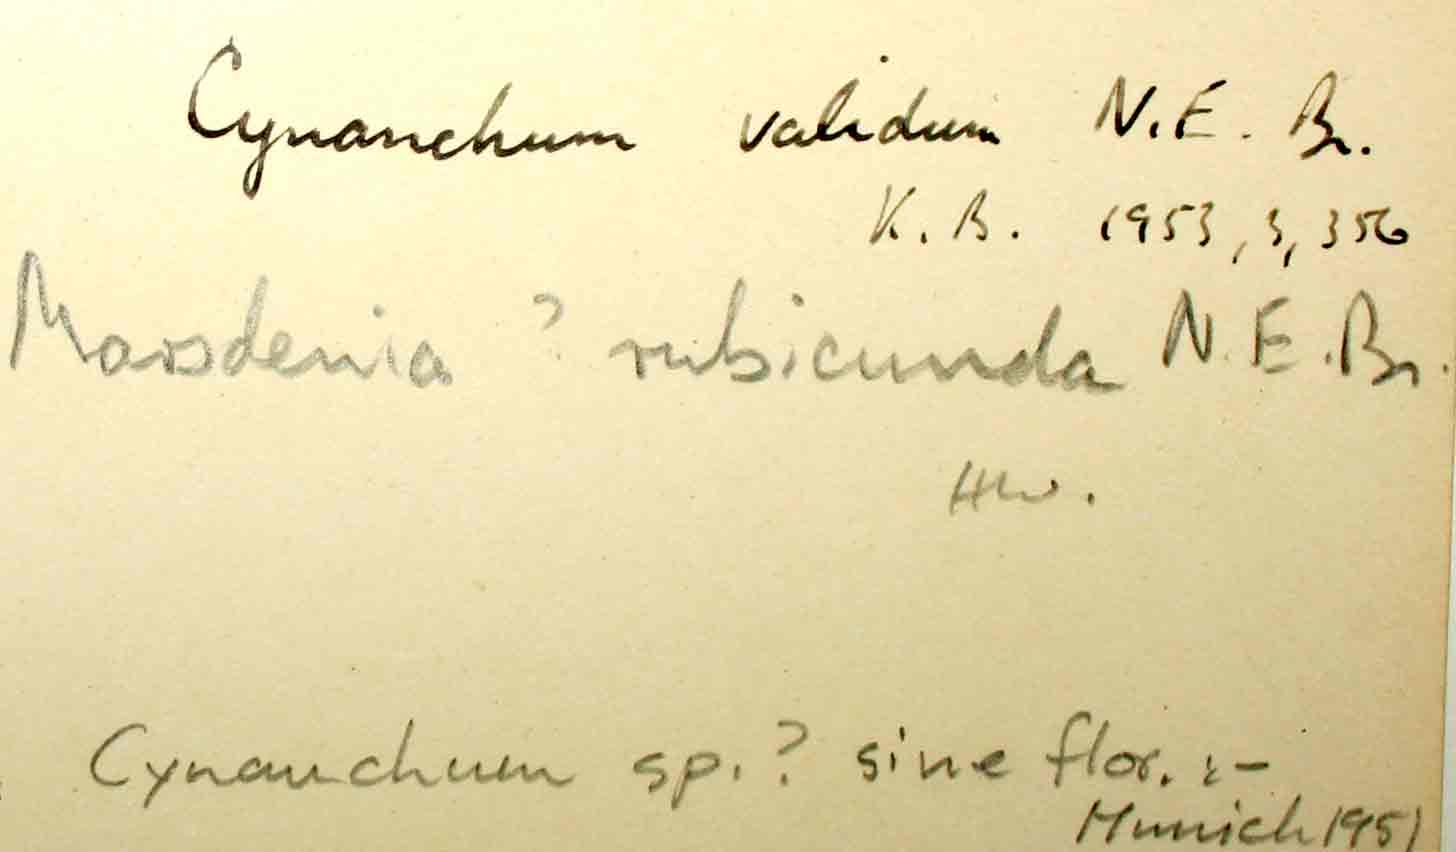 Cynanchum validum N.E. Br.
K.B. 1953, 3, 356
Marsdenia ? rubicunda N.E.Br.
HW.
Cynanchum sp.? sine flor. :-
Munich 1951